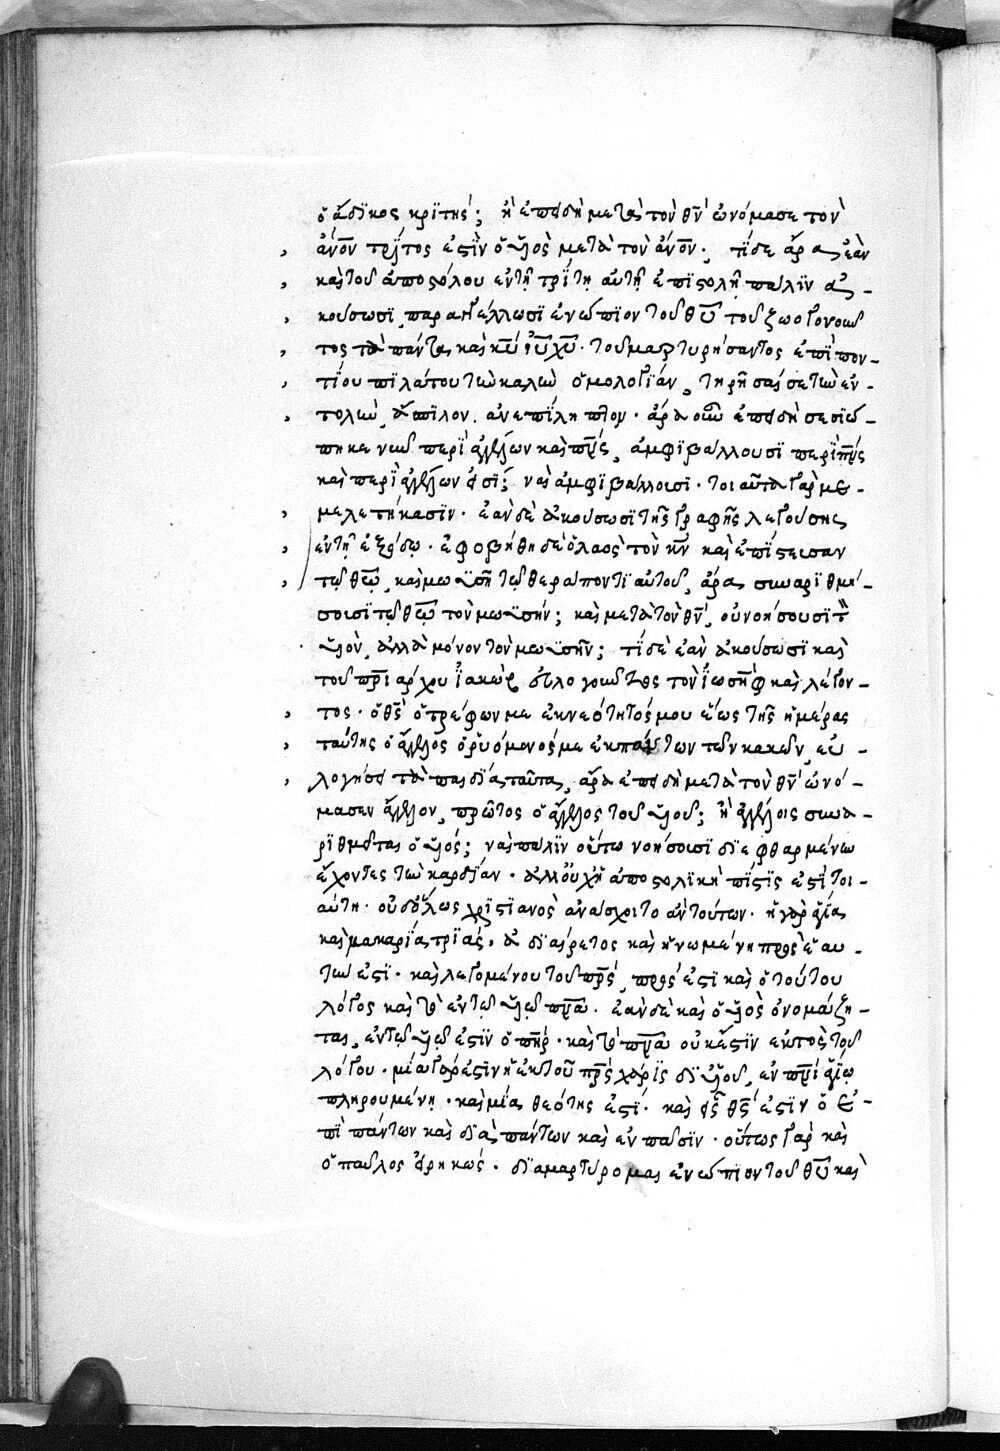 ὁ ἄδικος κριτής; ἢ ἐπειδὴ μετὰ τὸν θν ὠνόμασε τὸν
ἄνον τρίτος ἐστὶν ὁ υἱὸς μετὰ τὸν ἄνον· τί δὲ ἄρα ἐὰν
καὶ τοῦ ἀποστόλου ἐν τῇ τρίτῃ αὐτῇ ἐπιστολῇ πάλιν ἀ-
κούσωσι, παραγγέλλωσι ἐνώπιον τοῦ θυ τοῦ ζωογονοῦ
τος τὰ πάντα καὶ κυ ιυ χυ· τοῦ μαρτυρήσαντος ἐπὶ πον-
τίου πιλάτου τὴν καλὴν ὁμολογίαν, τηρῆσαί σε τὴν ἐν-
τολὴν ἄσπιλον, ἀνεπίληπτον· ἆρα οὖν ἐπειδὴ σεσιώ-
πηκε νῦν περὶ ἀγγέλων καὶ πνς, ἀμφιβάλλουσι περὶ πνς
καὶ περὶ ἀγγέλων εἰσί; ναὶ ἀμφιβάλλουσι· τοιαῦτα γὰρ με-
μελετήκασιν· ἐὰν δὲ ἀκούσωσι τῆς γραφῆς λεγούσης
ἐν τῇ ἐξόδῳ· ἐφοβήθη δὲ ὁ λαὸς τὸν κν καὶ ἐπίστευσαν
τῷ θεῷ, καὶ μωϋσῇ τῷ θεράποντι αὐτοῦ, ἆρα συναριθμή-
σουσι τῷ θεῷ τὸν μωϋσήν; καὶ μετὰ τὸν θν, οὐ νοήσουσι τ
υἱὸν, ἀλλὰ μόνον τὸν μωϋσῆν; τί δὲ ἐὰν ἀκούσωσι καὶ
τοῦ πριάρχου ἰακὼβ εὐλογοῦντος τὸν ἰωσὴφ καὶ λέγον-
τος· ὁ θς ὁ τρέφων με ἐκ νεότητός μου ἕως τῆς ἡμέρας
ταύτης ὁ ἄγγελος ὁ ῥυόμενός με ἐκ πάντων τῶν κακῶν, εὐ-
λογήσει τὰ παιδία ταῦτα, ἆρα ἐπειδὴ μετὰ τὸν θν ὠνό-
μασεν ἄγγελον, πρῶτος ὁ ἄγγελος τοῦ υἱοῦ; ἢ ἀγγέλοις συνα-
ριθμεῖται ὁ υἱός; ναὶ πάλιν οὕτω νοήσουσι διεφθαρμένην
ἔχοντες τὴν καρδίαν· ἀλλ' οὐχ ἡ ἀποστολικὴ πίστις ἐστὶ τοι-
αύτη· οὐδ' ὅλως χριστιανὸς ἀνάσχοιτο ἂν τούτων· ἡ γὰρ ἁγία
καὶ μακαρία τριὰς, ἀδιαίρετος καὶ ἡνωμένη πρὸς ἑαυ-
τὴν ἐστί· καὶ λεγομένου τοῦ πρς, πρόσεστι καὶ ὁ τούτου
λόγος καὶ τὸ ἐν τῷ υἱῷ πνα· ἐὰν δὲ καὶ ὁ υἱὸς ὀνομάζη-
ται, ἐν τῷ υἱῷ ἐστιν ὁ πηρ· καὶ τὸ πνα οὐκ ἔστιν ἐκτὸς τοῦ
λόγου· μία γάρ ἐστιν ἡ ἐκ τοῦ πρς χάρις δι' υἱοῦ, ἐν πνι ἁγίῳ
πληρουμένη· καὶ μία θεότης ἐστί· καὶ εἷς θς ἐστιν ὁ ἐ-
πὶ πάντων καὶ διὰ πάντων καὶ ἐν πᾶσιν· οὕτως γὰρ καὶ
ὁ παῦλος εἰρηκώς· διαμαρτύρομαι ἐνώπιον τοῦ θυ καὶ